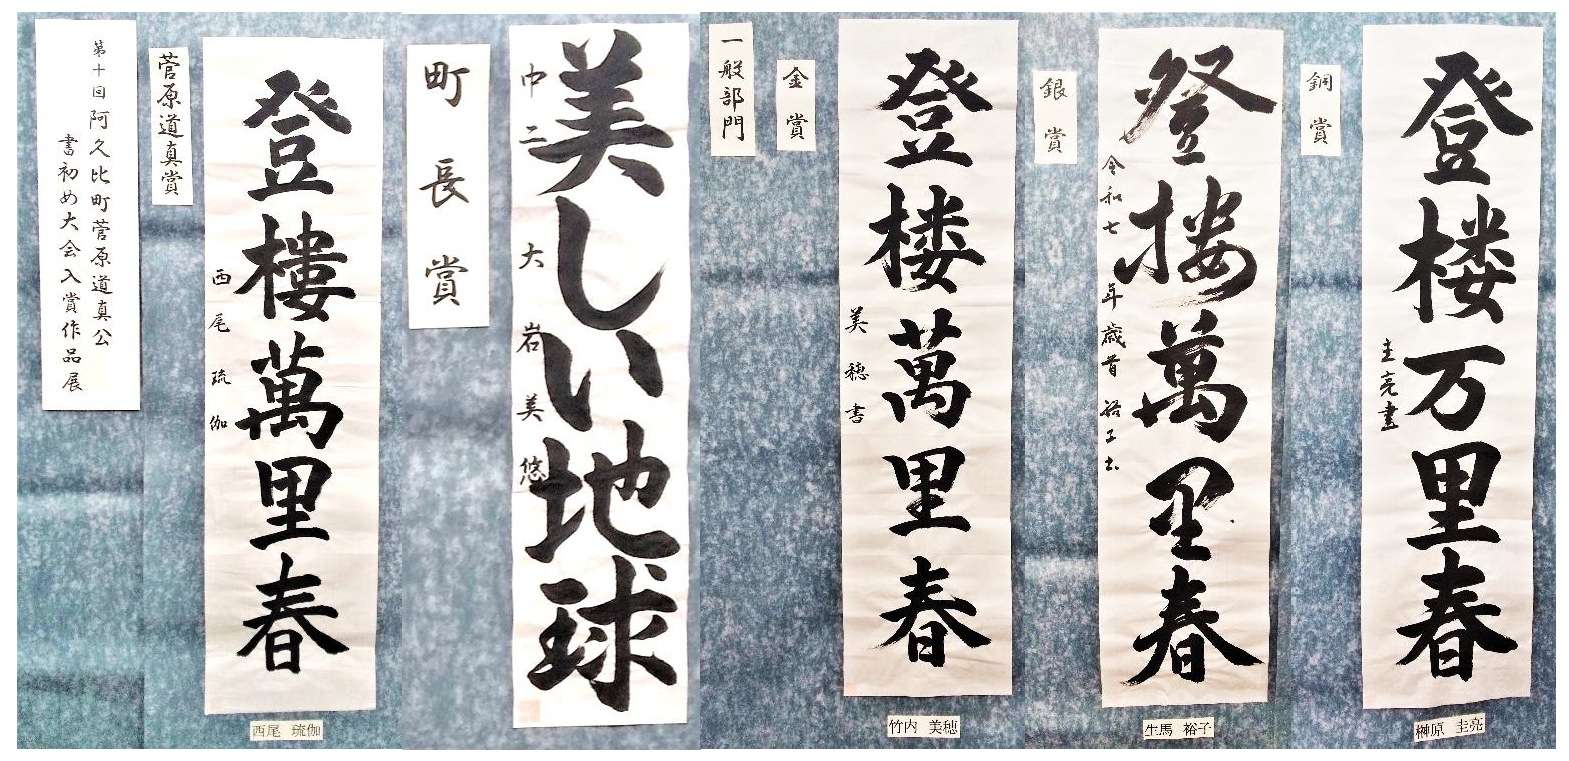 第十回 阿久比町菅原道真公
書初め大会入賞作品展
菅原道真賞
登樓萬里春
西尾琉伽
西尾 琉伽
町長賞
美しい地球
中二 大岩美悠
一般部門
金賞
登楼萬里春
美穂書
竹内 美穂
銀賞
登楼萬里春
令和七年歳首 裕子書
生馬 裕子
銅賞
登楼万里春
圭亮書
榊原 圭亮